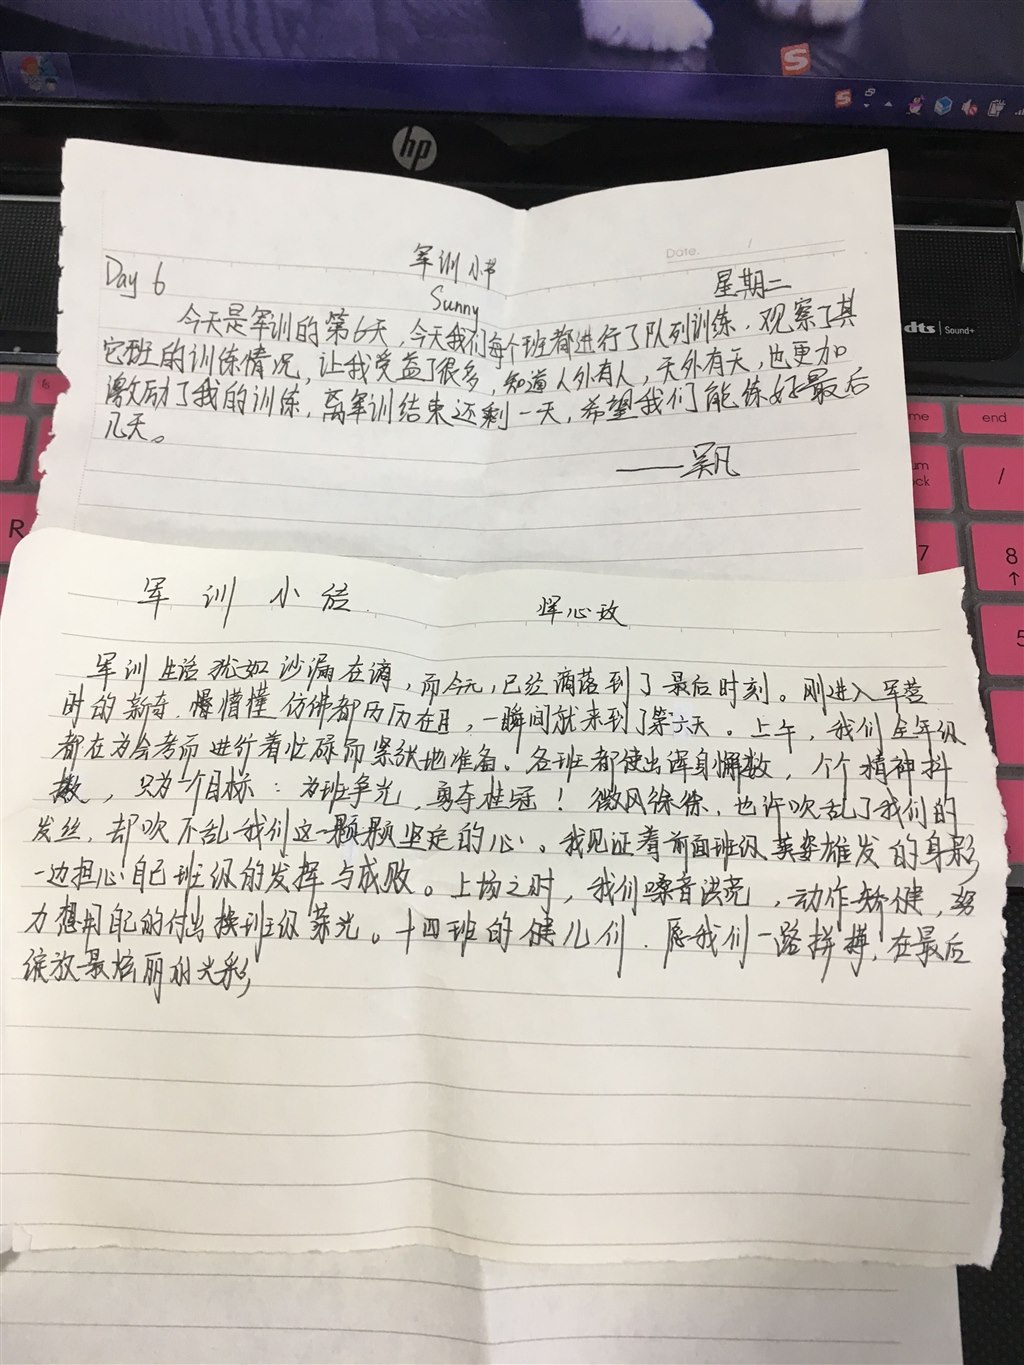 hp
dts Sound+
end
R
7
8
Date.
军训小书
Day 6
Sunny
星期二
今天是军训的第6天，今天我们每个班都进行了队列训练，观察了其
它班的训练情况，让我受益了很多，知道人外有人，天外有天，也更加
激励了我的训练，离军训结束还剩一天，希望我们能练好最后
几天。
——吴凡
军训小结
恽心玫
军训生活犹如沙漏在滴，而今天，已经滴落到了最后时刻。刚进入军营
时的新奇、懵懂仿佛都历历在目，一瞬间就来到了第六天。上午，我们全年级
都在为会考而进行着忙碌而紧张地准备。各班都使出浑身懈数，个个精神抖
擞，只为一个目标：为班争光，勇夺桂冠！微风徐徐，也许吹乱了我们的
发丝，却吹不乱我们这一颗颗坚定的心。我见证着前面班级英姿雄发的身影，
一边担心自己班级的发挥与成败。上场之时，我们嗓音洪亮，动作矫健，努
力想用自己的付出换班级荣光。十四班的健儿们，愿我们一路拼搏，在最后
绽放最炫丽的光彩，